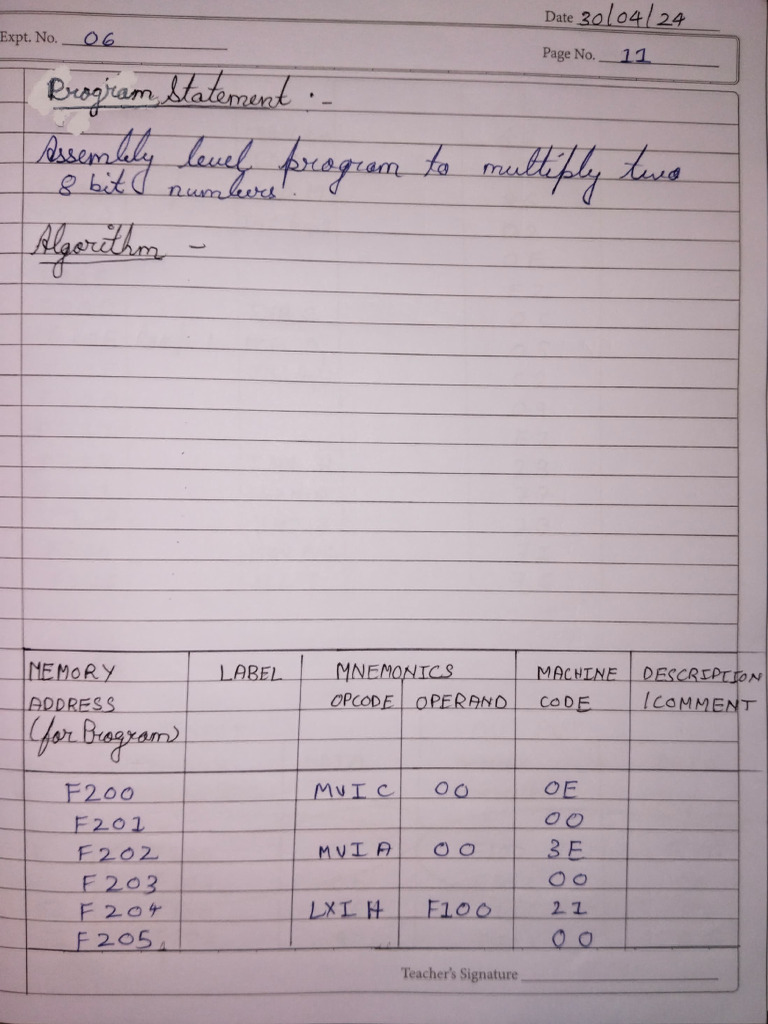 Date 30/04/24
Expt. No. 06
Page No. 11
Program Statement :-
Assembly level program to multiply two
8 bit numbers.
Algorithm -
MEMORY LABEL MNEMONICS MACHINE DESCRIPTION
ADDRESS OPCODE OPERAND CODE /COMMENT
(for Program)
F200 MVI C 00 0E
F201 00
F202 MVI A 00 3E
F203 00
F204 LXI H F100 21
F205 00
Teacher's Signature